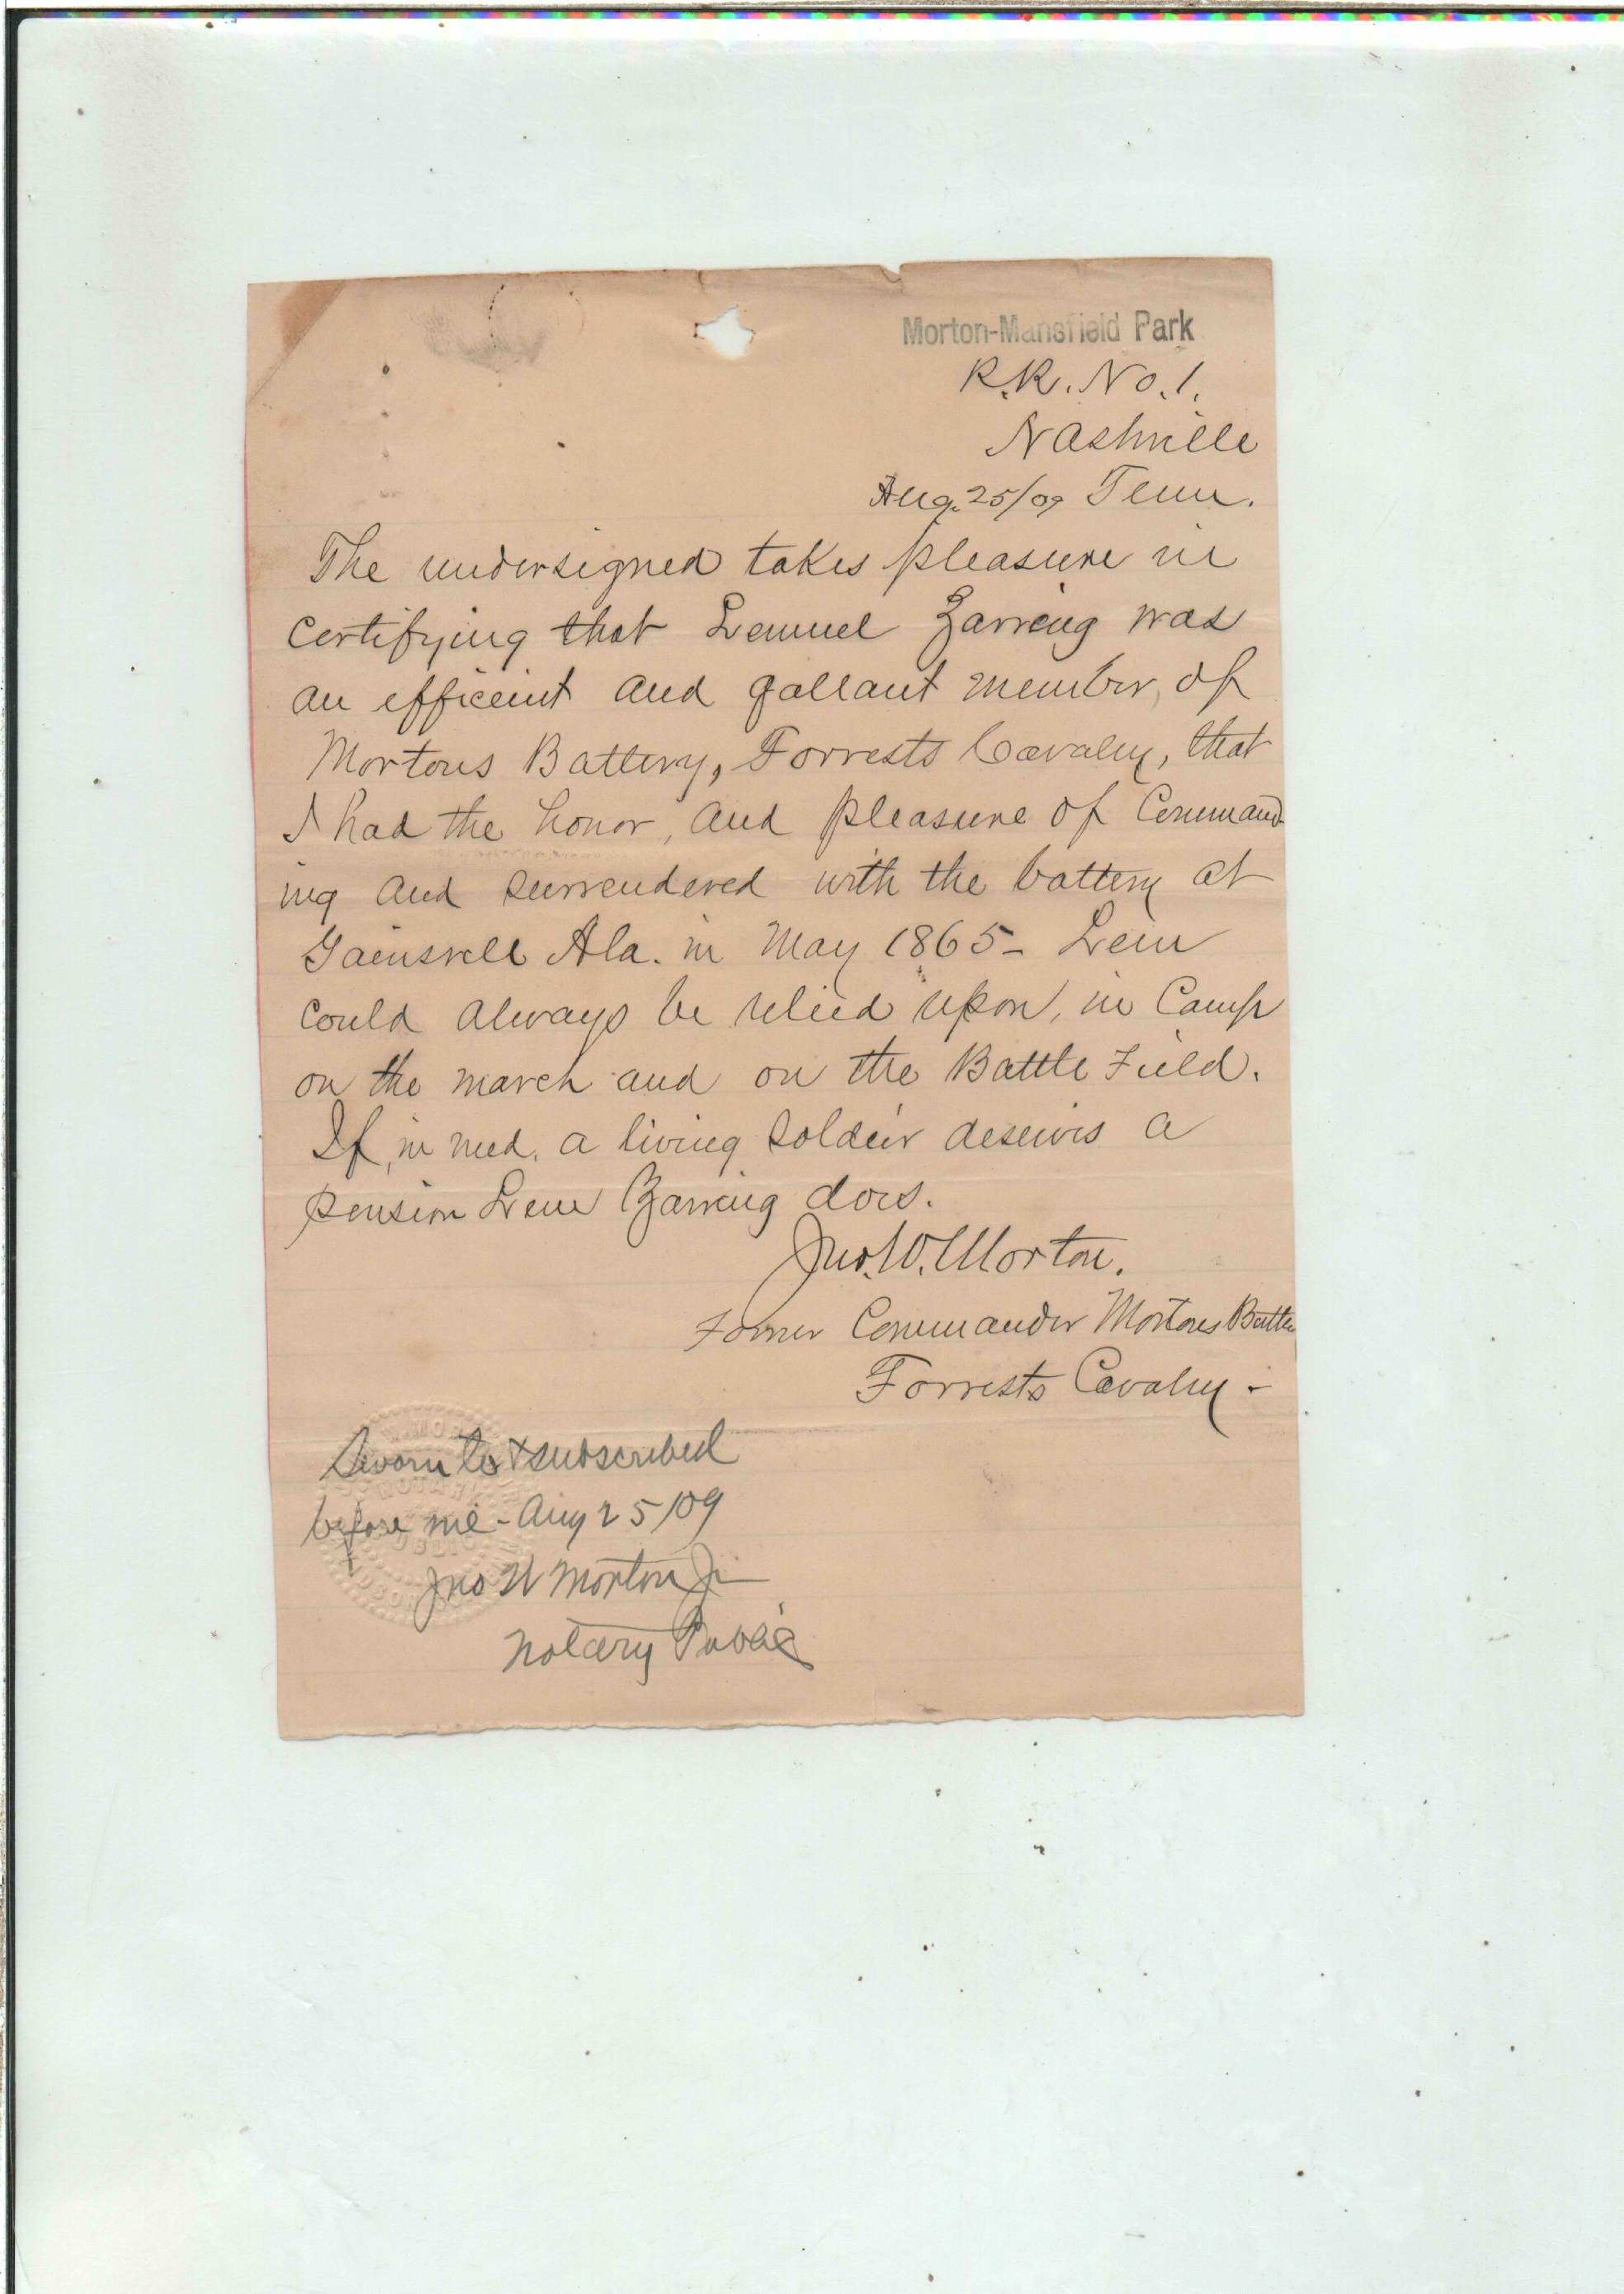 Morton-Mansfield Park
R.R. No. 1.
Nashville
Aug. 25/09 Tenn.
The undersigned takes pleasure in
certifying that Lemuel Zarring was
an efficient and gallant member, of
Mortons Battery, Forrests Cavalry, that
I had the honor, and pleasure of Command
ing and surrendered with the battery at
Gainsvill Ala. in May 1865- Lem
could always be relied upon, in Camp
on the march and on the Battle Field.
If, in need, a living soldier deserves a
pension Lem Zarring does.
Jno. W. Morton.
Former Commander Mortons Batte
Forrests Cavalry -
Sworn to & subscribed
before me - Aug 25/09
Jno W Morton Jr
Notary Public